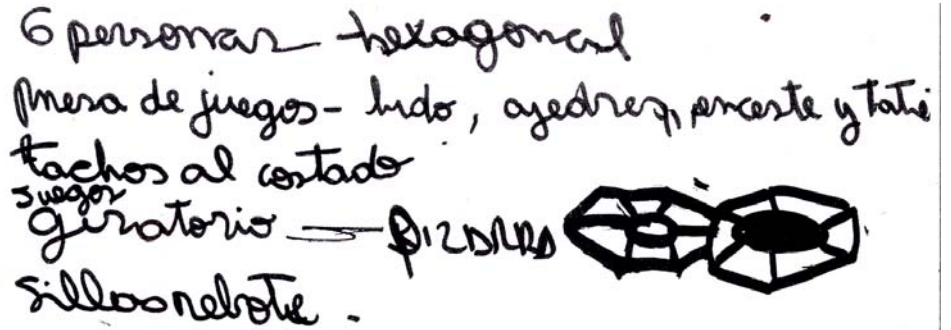 6 personas hexagonal
mesa de juegos - ludo, ajedrez, enceste y tatí
tachos al costado
juegos
giratorio — PIZARRA
sillas rebote.